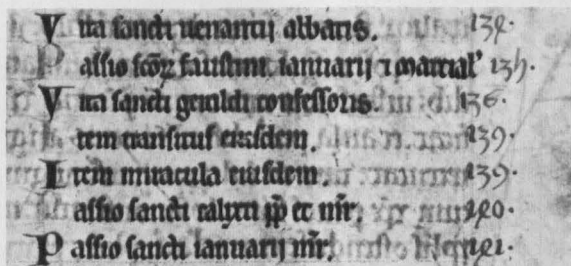 Vita sancti uenantij abbatis. 132.
Passio scōꝝ faustini. ianuarij ⁊ marcial' 135.
Vita sancti geraldi confessoris. 136.
tem transitus eiusdem. 139.
Item miracula eiusdem. 139.
assio sancti calixti pp̄ et mr̄. 140.
Passio sancti ianuarij mr̄. 141.